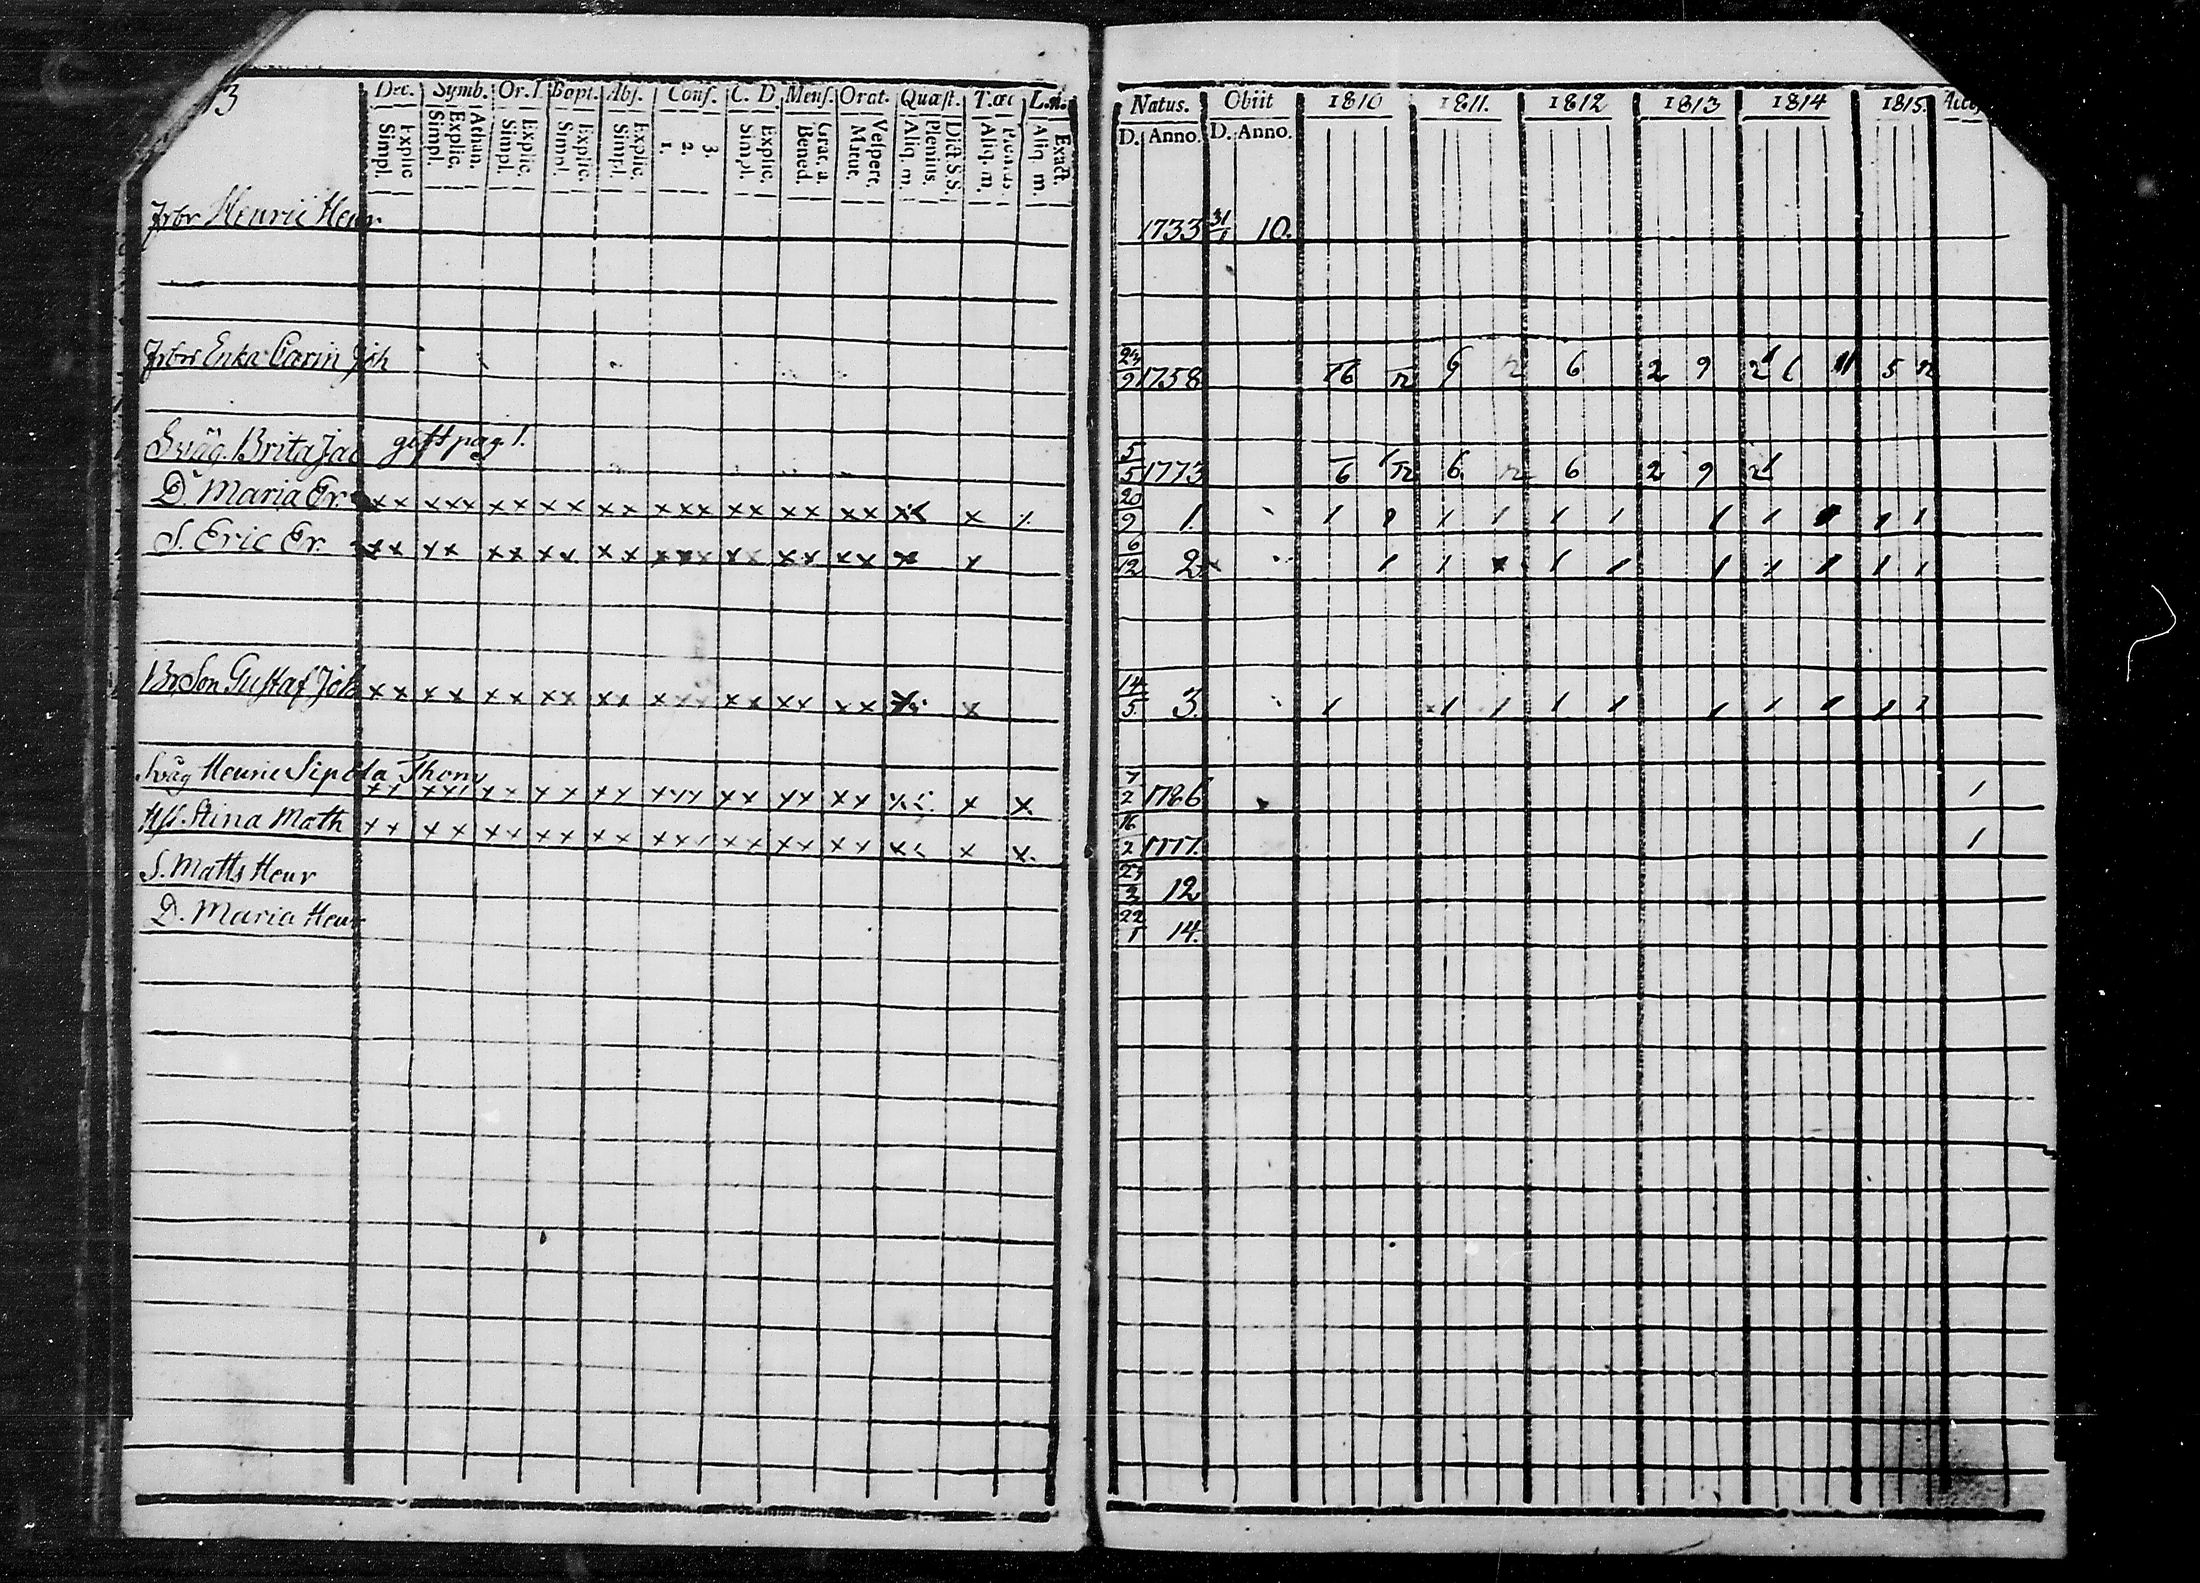 3
Dec. Symb. Or. D. Bapt. Abs. Conf. C. D. Mens. Orat. Quæst. T. œc L. n.
Simpl. Explic. Simpl. Explic. Athan. Simpl. Explic. Simpl. Explic. Simpl. Explic. 1. 2. 3. Simpl. Explic. Bened. Grat. a. Matut. Vespert. Aliq. m. Plenius. Dict. S.S. Aliq. m. Plenius. Aliq. m. Exact.
Natus. Obiit 1810 1811. 1812 1813 1814 1815.
D. Anno. D. Anno.
Henric Henr. 1733 31/1 10.
Enka Carin Joh 23/9 1758 6 12 6 12 6 2 9 5 12
Svåg. Brita Jac gift pag. 1. 5/5 1773 6 12 6 12 6 2 9
D. Maria Er. x x x x x x x x x x x x x x x x x x x x x x x 20/9 1. 1 1 1 1 1 1 1 1 1 1
S. Eric Er. x x x x x x x x x x x x x x x x x x x x x 6/12 2. 1 1 1 1 1 1 1 1 1 1
Br Son Gustaf Joh x x x x x x x x x x x x x x x x x x x x x 14/5 3. 1 1 1 1 1 1 1 1 1 1
Svåg Henric Sipola Thom 7/2 1786 1
x x x x x x x x x x x x x x x x x x x x x x
Hst. Stina Math x x x x x x x x x x x x x x x x x x x x x x x 16/2 1777. 1
S. Matts Henr 12
D. Maria Henr 22/1 14.